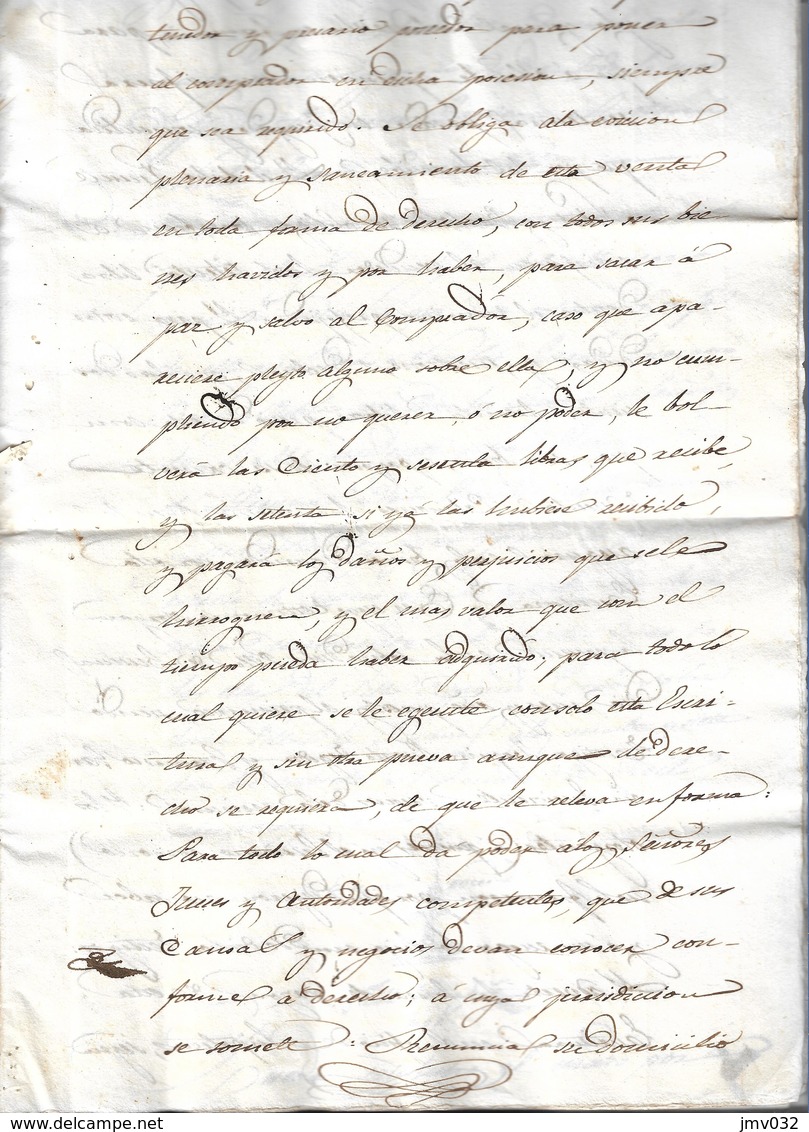 tenedor y precario poseedor para poner
al comprador en dicha posesion, siempre
que sea requirido. Se obliga á la eviccion
plenaria y saneamiento de esta venta
en toda forma de derecho, con todos sus bie-
nes havidos y por haber, para sacar á
paz y salvo al Comprador, caso que apa-
reciere pleyto alguno sobre ella, y no cum-
pliendo por no querer, ó no poder, le bol
verá las Ciento y sesenta libras que recibe,
y las setenta si yá las hubiese recibido,
y pagará los daños y perjuicios que se le
hirroguen, y el mas valor que con el
tiempo pueda haber adquirido; para todo lo
cual quiere se le egecute con solo esta Escri-
tura y sin otra prueva aunque de dere-
cho se requiera, de que le releva en forma:
Para todo lo cual da poder á los Señores
Jueces y Autoridades competentes, que de sus
Causas y negocios devan conocer con-
forme a derecho; á cuya jurisdicion
se somete: Renuncia su domicilio
delcampe.net
jmv032